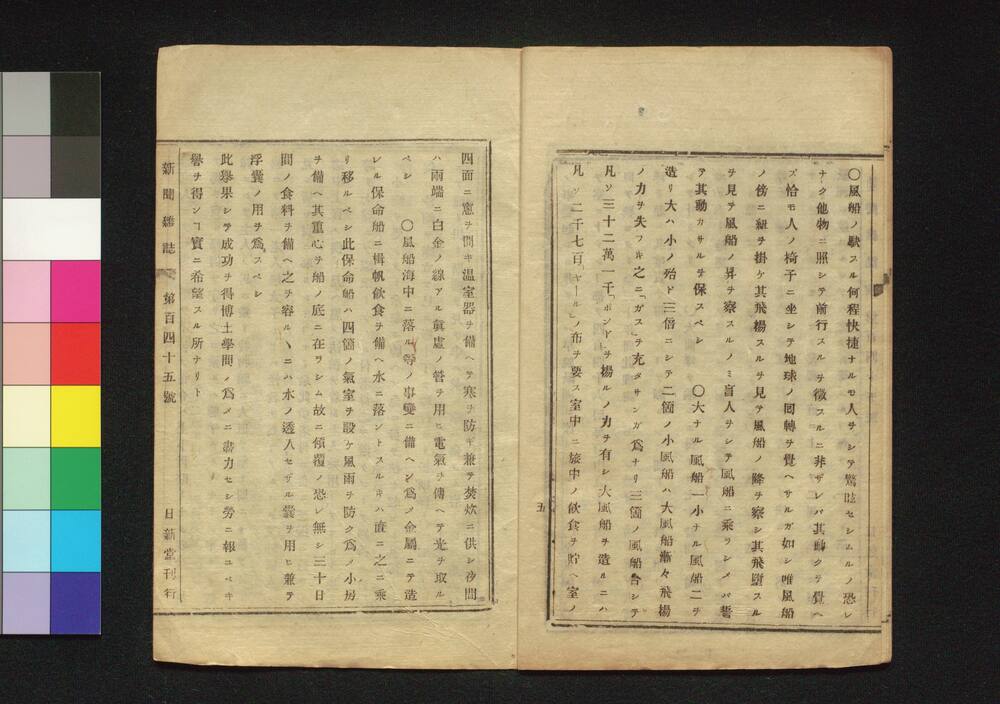 〇風船ノ駛スル何程快捷ナルモ人ヲシテ驚眩セシムルノ恐レ
ナク他物ニ照シテ前行スルヲ徴スルニ非ザレバ其動クヲ覺ヘ
ズ恰モ人ノ椅子ニ坐シテ地球ノ囘轉ヲ覺ヘサルガ如シ唯風船
ノ傍ニ紐ヲ掛ケ其飛揚スルヲ見テ風船ノ降ヲ察シ其飛墮スル
ヲ見テ風船ノ昇ヲ察スルノミ盲人ヲシテ風船ニ乘ラシメバ誓
テ其動カサルヲ保スベシ 〇大ナル風船一小ナル風船二ヲ
造リ大ハ小ノ殆ド三倍ニシテ二箇ノ小風船ハ大風船漸々飛揚
ノ力ヲ失フキ之ニ「ガス」ヲ充タサンガ爲ナリ三箇ノ風船合シテ
凡ソ三十二萬一千「ポンド」ヲ揚ルノ力ヲ有シ大風船ヲ造ルニハ
凡ソ二千七百「ヤール」ノ布ヲ要ス室中ニ旅中ノ飮食ヲ貯ヘ室ノ
五
四面ニ窓ヲ開キ温室器ヲ備ヘテ寒ヲ防ギ兼テ焚炊ニ供シ汐間
ハ兩端ニ白金ノ線アル眞虛ノ管ヲ用ヒ電氣ヲ傳ヘテ光ヲ取ル
ベシ 〇風船海中ニ落ル等ノ事變ニ備ヘン爲メ金屬ニテ造
レル保命船ニ楫帆飮食ヲ備ヘ水ニ落ントスルキハ直ニ之ニ乘
リ移ルベシ此保命船ハ四箇ノ氣室ヲ設ケ風雨ヲ防ク爲メ小房
ヲ備ヘ其重心ヲ船ノ底ニ在ワシム故ニ傾覆ノ恐レ無シ三十日
間ノ食料ヲ備ヘ之ヲ容ルヽニハ水ノ透入セザル嚢ヲ用ヒ兼テ
浮嚢ノ用ヲ爲スベシ
此擧果シテ成功ヲ得博士學問ノ爲メニ盡力セシ勞ニ報ユベキ
譽ヲ得ンヿ實ニ希望スル所ナリト
新聞雜誌 第百四十五號 日新堂刊行